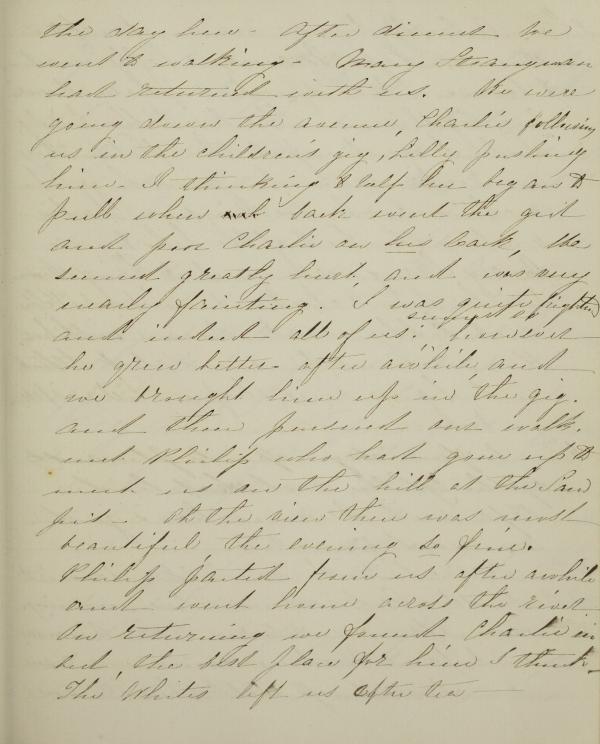 the day here - After dinner we
went to walking - Mary Strangman
had returned with us. We were
going down the avenue, Charlie following
us in the children's gig, Lilly pushing
him - I thinking to help her began to
pull when back went the gig
and poor Charlie on his back, He
seemed greatly hurt, and was very
nearly fainting. I was quite frightened
and indeed all of us; however
he grew better after awhile, and
we brought him up in the gig.
and then pursued our walk.
met Philip who had gone up to
meet us on the hill at the San
pit - Oh the view there was most
beautiful, the evening so fine.
Philip parted from us after awhile
and went home across the river
On returning we found Charlie in
bed, the best place for him I think -
The Whites left us after tea -